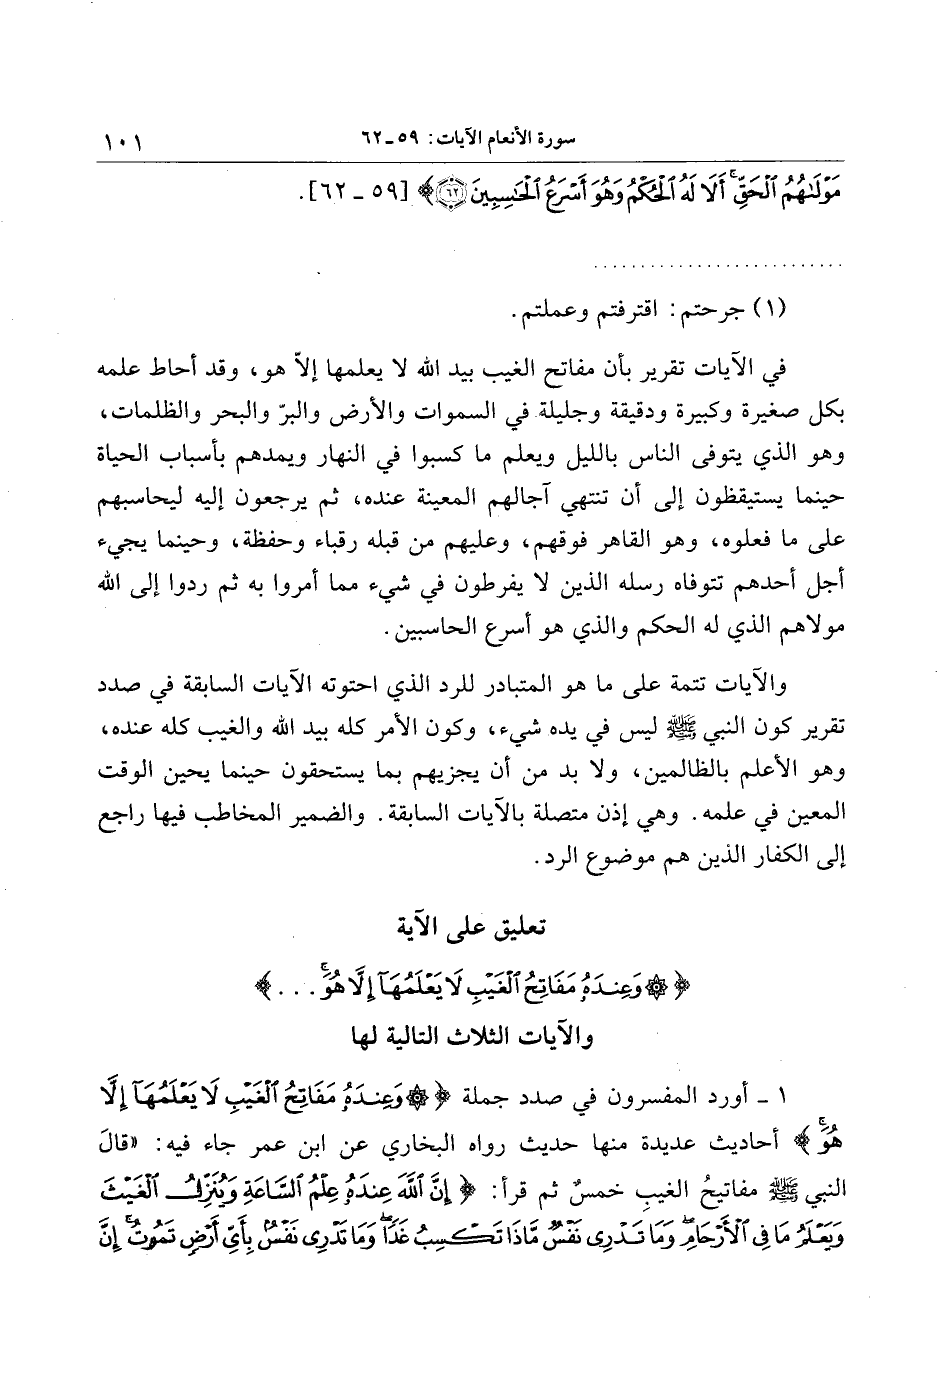 سورة الأنعام الآيات: ٥٩ـ٦٢ ١٠١
مَوْلَىٰهُمُ ٱلْحَقِّ ۚ أَلَا لَهُ ٱلْحُكْمُ وَهُوَ أَسْرَعُ ٱلْحَٰسِبِينَ ٦٢ ﴾ [٥٩ ـ ٦٢].
..........................
(١) جرحتم: اقترفتم وعملتم.
في الآيات تقرير بأن مفاتح الغيب بيد الله لا يعلمها إلاّ هو، وقد أحاط علمه
بكل صغيرة وكبيرة ودقيقة وجليلة في السموات والأرض والبرّ والبحر والظلمات،
وهو الذي يتوفى الناس بالليل ويعلم ما كسبوا في النهار ويمدهم بأسباب الحياة
حينما يستيقظون إلى أن تنتهي آجالهم المعينة عنده، ثم يرجعون إليه ليحاسبهم
على ما فعلوه، وهو القاهر فوقهم، وعليهم من قبله رقباء وحفظة، وحينما يجيء
أجل أحدهم تتوفاه رسله الذين لا يفرطون في شيء مما أمروا به ثم ردوا إلى الله
مولاهم الذي له الحكم والذي هو أسرع الحاسبين.
والآيات تتمة على ما هو المتبادر للرد الذي احتوته الآيات السابقة في صدد
تقرير كون النبي ﷺ ليس في يده شيء، وكون الأمر كله بيد الله والغيب كله عنده،
وهو الأعلم بالظالمين، ولا بد من أن يجزيهم بما يستحقون حينما يحين الوقت
المعين في علمه. وهي إذن متصلة بالآيات السابقة. والضمير المخاطب فيها راجع
إلى الكفار الذين هم موضوع الرد.
تعليق على الآية
﴿ ۞ وَعِندَهُۥ مَفَاتِحُ ٱلْغَيْبِ لَا يَعْلَمُهَآ إِلَّا هُوَ ۚ . . . ﴾
والآيات الثلاث التالية لها
١ ـ أورد المفسرون في صدد جملة ﴿ ۞ وَعِندَهُۥ مَفَاتِحُ ٱلْغَيْبِ لَا يَعْلَمُهَآ إِلَّا
هُوَ ۚ ﴾ أحاديث عديدة منها حديث رواه البخاري عن ابن عمر جاء فيه: «قالَ
النبي ﷺ مفاتيحُ الغيبِ خمسٌ ثم قرأ: ﴿ إِنَّ ٱللَّهَ عِندَهُۥ عِلْمُ ٱلسَّاعَةِ وَيُنَزِّلُ ٱلْغَيْثَ
وَيَعْلَمُ مَا فِى ٱلْأَرْحَامِ ۖ وَمَا تَدْرِى نَفْسٌ مَّاذَا تَكْسِبُ غَدًا ۖ وَمَا تَدْرِى نَفْسٌۢ بِأَىِّ أَرْضٍ تَمُوتُ ۚ إِنَّ